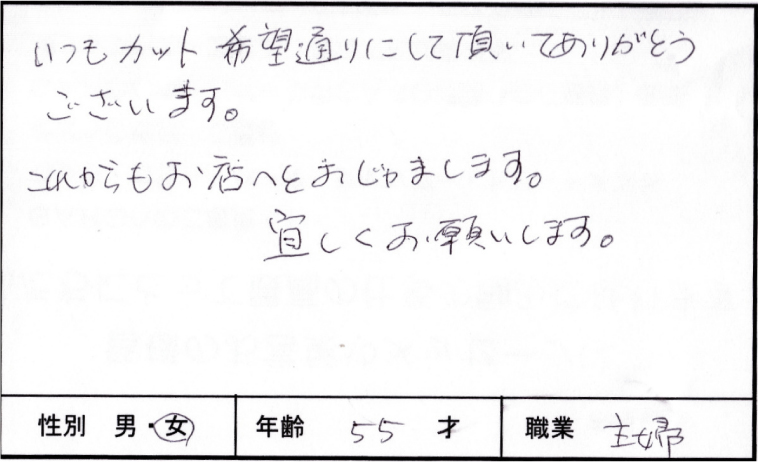 いつもカット希望通りにして頂いてありがとう
ございます。
これからもお店へとおじゃまします。
宜しくお願いします。
性別 男・女 年齢 55 才 職業 主婦